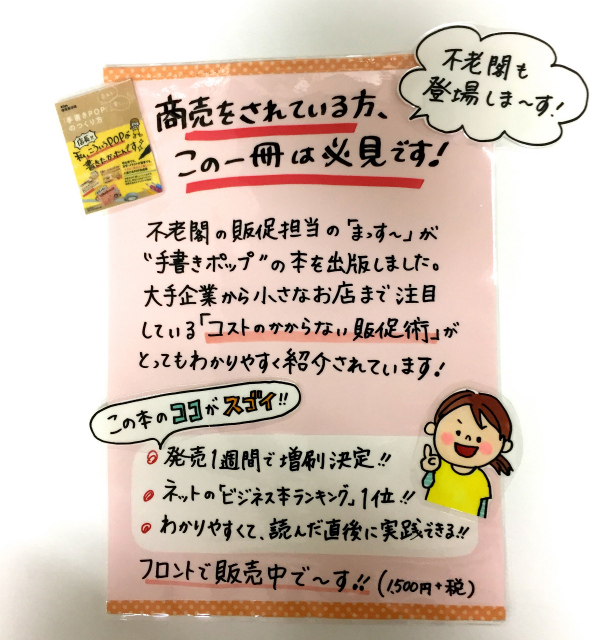 不老閣も
登場しま〜す!
手書きPOP
のつくり方
店長!!
私、こういうPOPが
書きたかったんです!!
商売をされている方、
この一冊は必見です!
不老閣の販促担当の「まっす〜」が
"手書きポップ"の本を出版しました。
大手企業から小さなお店まで注目
している「コストのかからない販促術」が
とってもわかりやすく紹介されています!
この本のココがスゴイ!!
発売1週間で増刷決定!!
ネットの「ビジネス本ランキング」1位!!
わかりやすくて、読んだ直後に実践できる!!
フロントで販売中で〜す!! (1,500円+税)